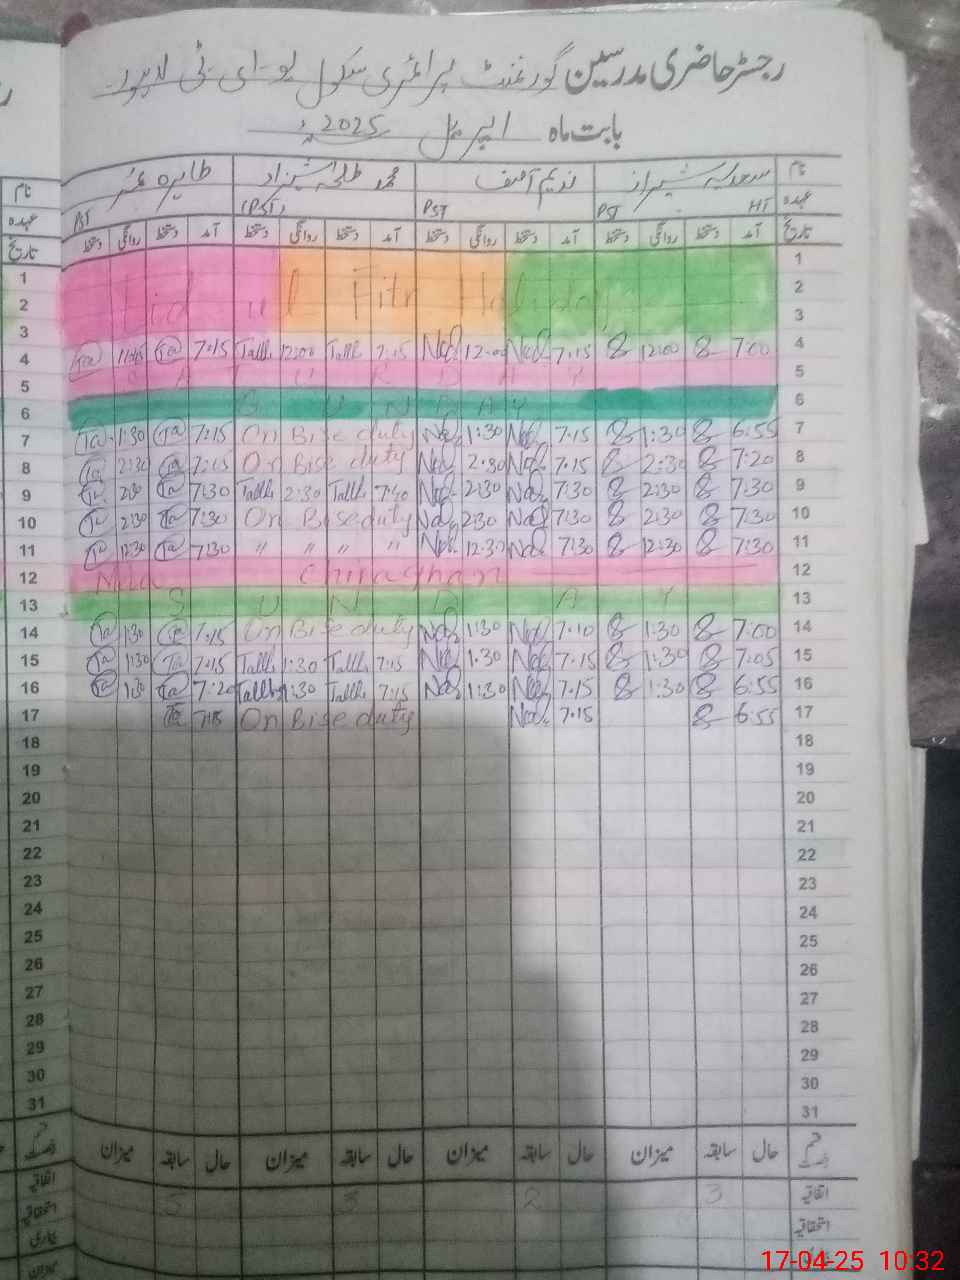 رجسٹر حاضری مدرسین گورنمنٹ پرائمری سکول یو-ای-ٹی لاہور
بابت ماہ اپریل 2025ء
نام سعدیہ شیراز ندیم آصف محمد طلحہ شہزاد طاہرہ نام
عہدہ HT PST PST (PST) PST عہدہ
تاریخ آمد دستخط روانگی دستخط آمد دستخط روانگی دستخط آمد دستخط روانگی دستخط آمد دستخط روانگی دستخط تاریخ
1 1
2 Eid ul Fitr Holiday 2
3 3
4 11:45 7:15 Talh 12:00 Talh 7:15 Nad 12:00 Nad 7:15 12:00 7:00 4
5 S A T U R D A Y 5
6 S U N D A Y 6
7 Ta 1:30 Ta 7:15 On Bise duty Nad 1:30 Nad 7:15 1:30 6:55 7
8 Ta 2:30 Ta 7:15 On Bise duty Nad 2:30 Nad 7:15 2:30 7:20 8
9 Ta 2:30 Ta 7:30 Talh 2:30 Talh 7:40 Nad 2:30 Nad 7:30 2:30 7:30 9
10 Ta 2:30 Ta 7:30 On Bise duty Nad 2:30 Nad 7:30 2:30 7:30 10
11 Ta 12:30 Ta 7:30 " " " " Nad 12:30 Nad 7:30 12:30 7:30 11
12 Mela Chiraghan 12
13 S U N D A Y 13
14 Ta 1:30 Ta 7:15 On Bise duty Nad 1:30 Nad 7:10 1:30 7:00 14
15 Ta 1:30 Ta 7:15 Talh 1:30 Talh 7:15 Nad 1:30 Nad 7:15 1:30 7:05 15
16 Ta 1:30 Ta 7:20 Talh 1:30 Talh 7:15 Nad 1:30 Nad 7:15 1:30 6:55 16
17 Ta 7:15 On Bise duty Nad 7:15 6:55 17
18 18
19 19
20 20
21 21
22 22
23 23
24 24
25 25
26 26
27 27
28 28
29 29
30 30
31 31
حال سابقہ میزان حال سابقہ میزان حال سابقہ میزان حال سابقہ میزان
اتفاقیہ 3 2 3 5 اتفاقیہ
استحقاقیہ استحقاقیہ
بیماری
17-04-25 10:32